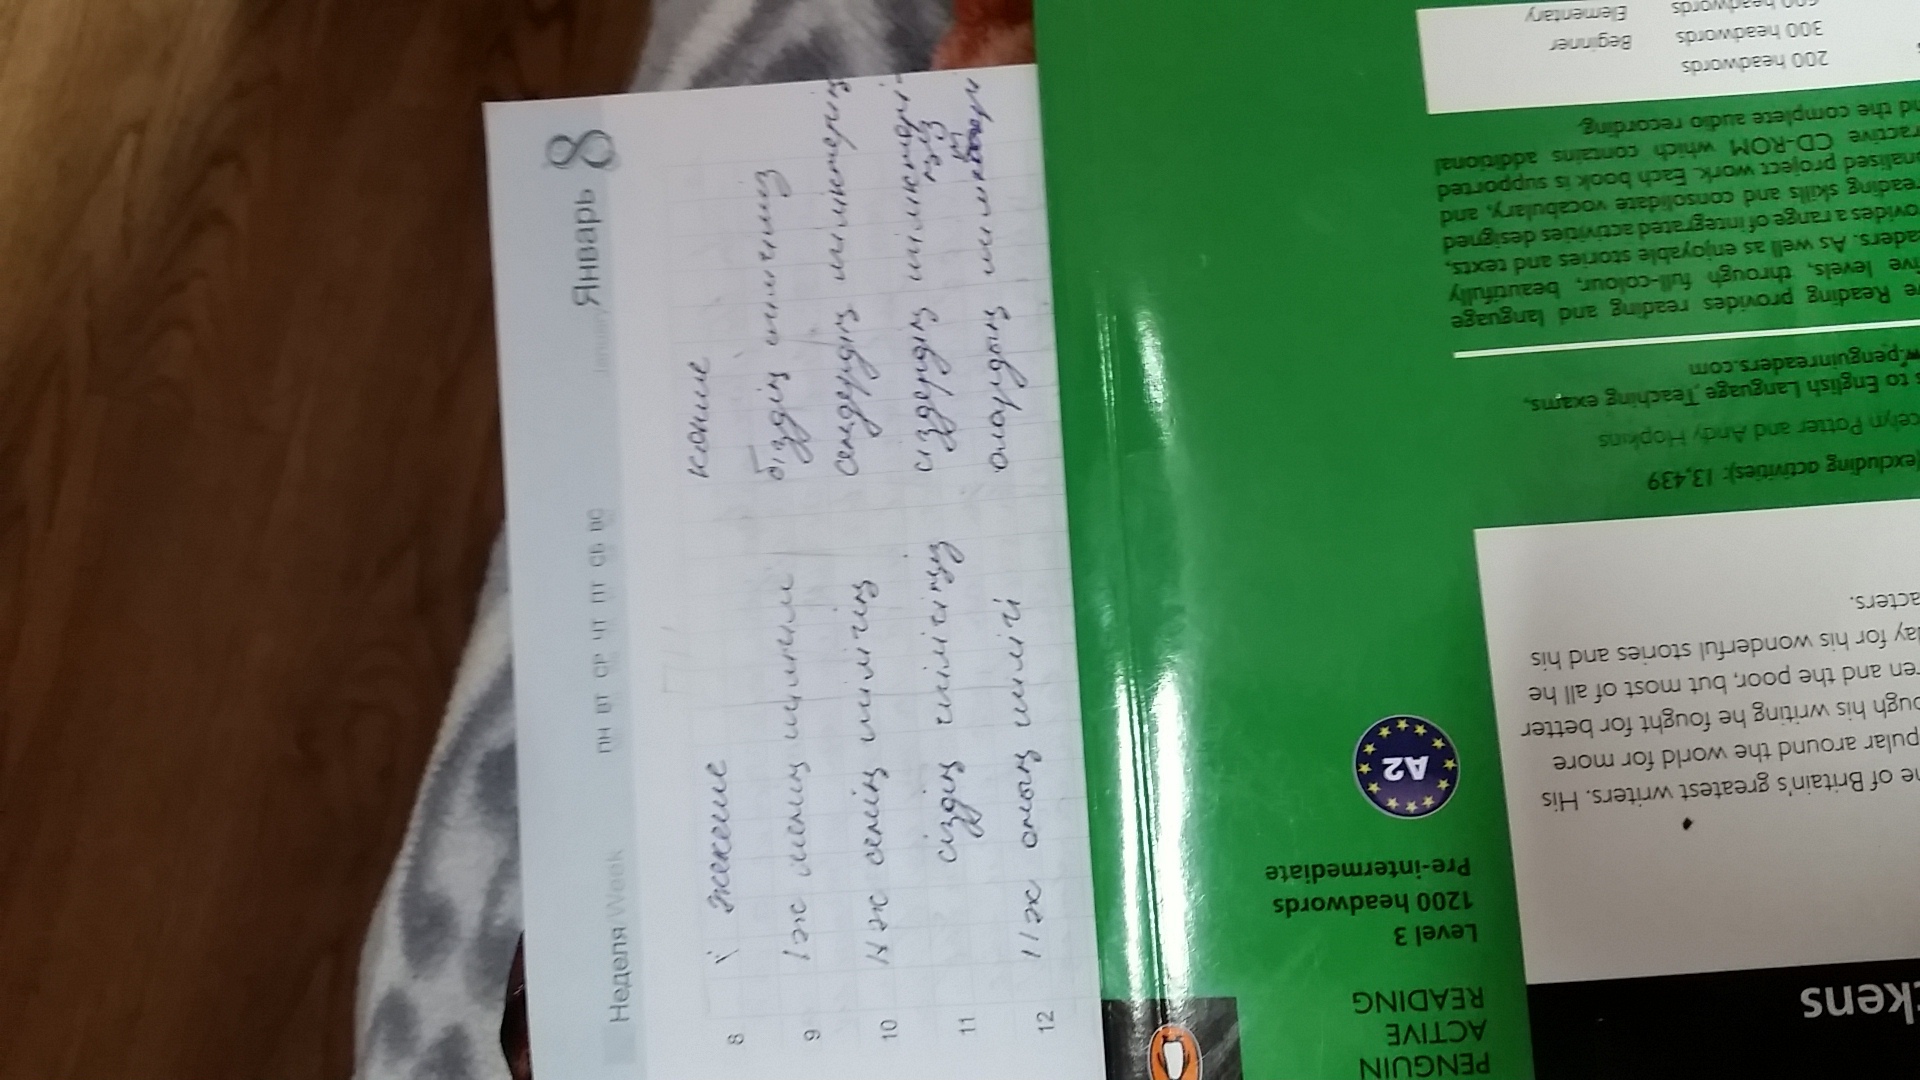 Неделя Week ПН ВТ СР ЧТ ПТ СБ ВС January Январь 8
8
9
10
11
12
жекеше көпше
І ж менің біздің
ІІ ж сенің шілігің сендердің шіліктерің
сіздің шілігіңіз сіздердің шіліктері-
ңіз
ІІІ ж оның шілігі олардың
600 headwords Elementary
300 headwords Beginner
200 headwords
nd the complete audio recording.
ractive CD-ROM which contains additional
nalised project work. Each book is supported
reading skills and consolidate vocabulary, and
ovides a range of integrated activities designed
eaders. As well as enjoyable stories and texts,
ive levels, through full-colour, beautifully
ve Reading provides reading and language
w.penguinreaders.com
s to English Language Teaching exams,
celyn Potter and Andy Hopkins
(excluding activities): 13,439
acters.
lay for his wonderful stories and his
ren and the poor, but most of all he
ough his writing he fought for better
pular around the world for more
ne of Britain's greatest writers. His
A2
Pre-intermediate
1200 headwords
Level 3
kens
PENGUIN
ACTIVE
READING